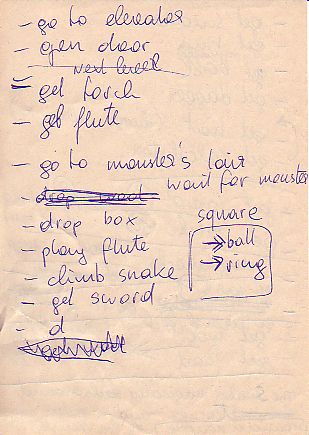 - go to elevator
- open door
next level
- get torch
- get flute
- go to monster's lair
- wait for monster
- drop box
- play flute
- climb snake
- get sword
- d
square
→ ball
→ ring